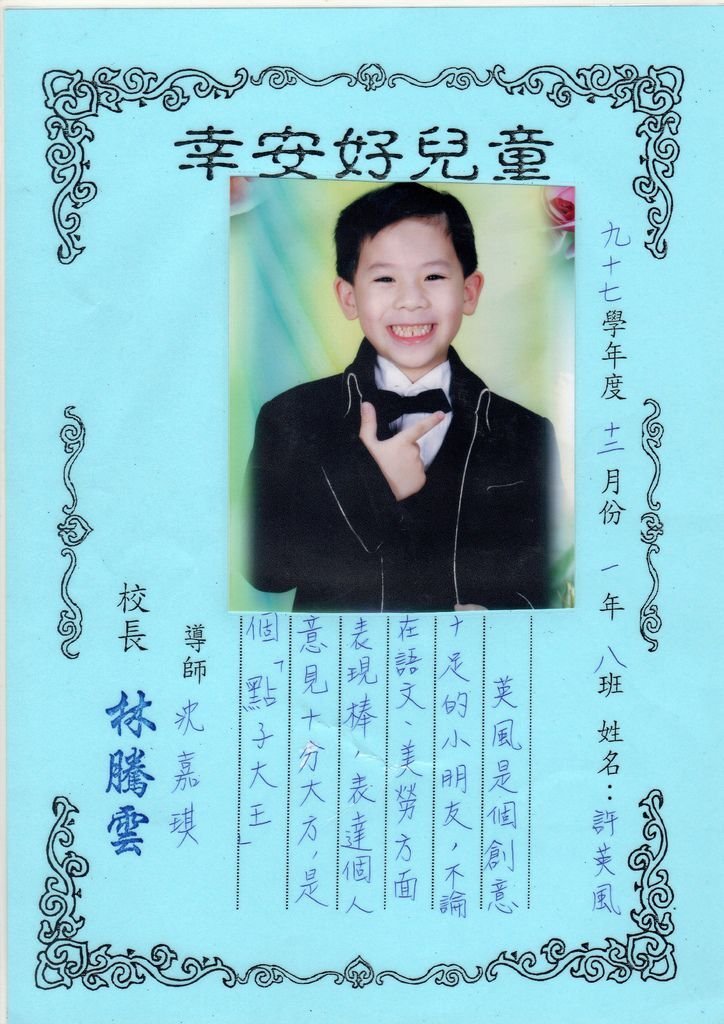 幸安好兒童
九十七學年度 十二月份 一年 八班 姓名：許英風
英風是個創意
十足的小朋友，不論
在語文、美勞方面
表現棒，表達個人
意見十分大方，是
個「點子大王」
導師 沈嘉琪
校長 林騰雲